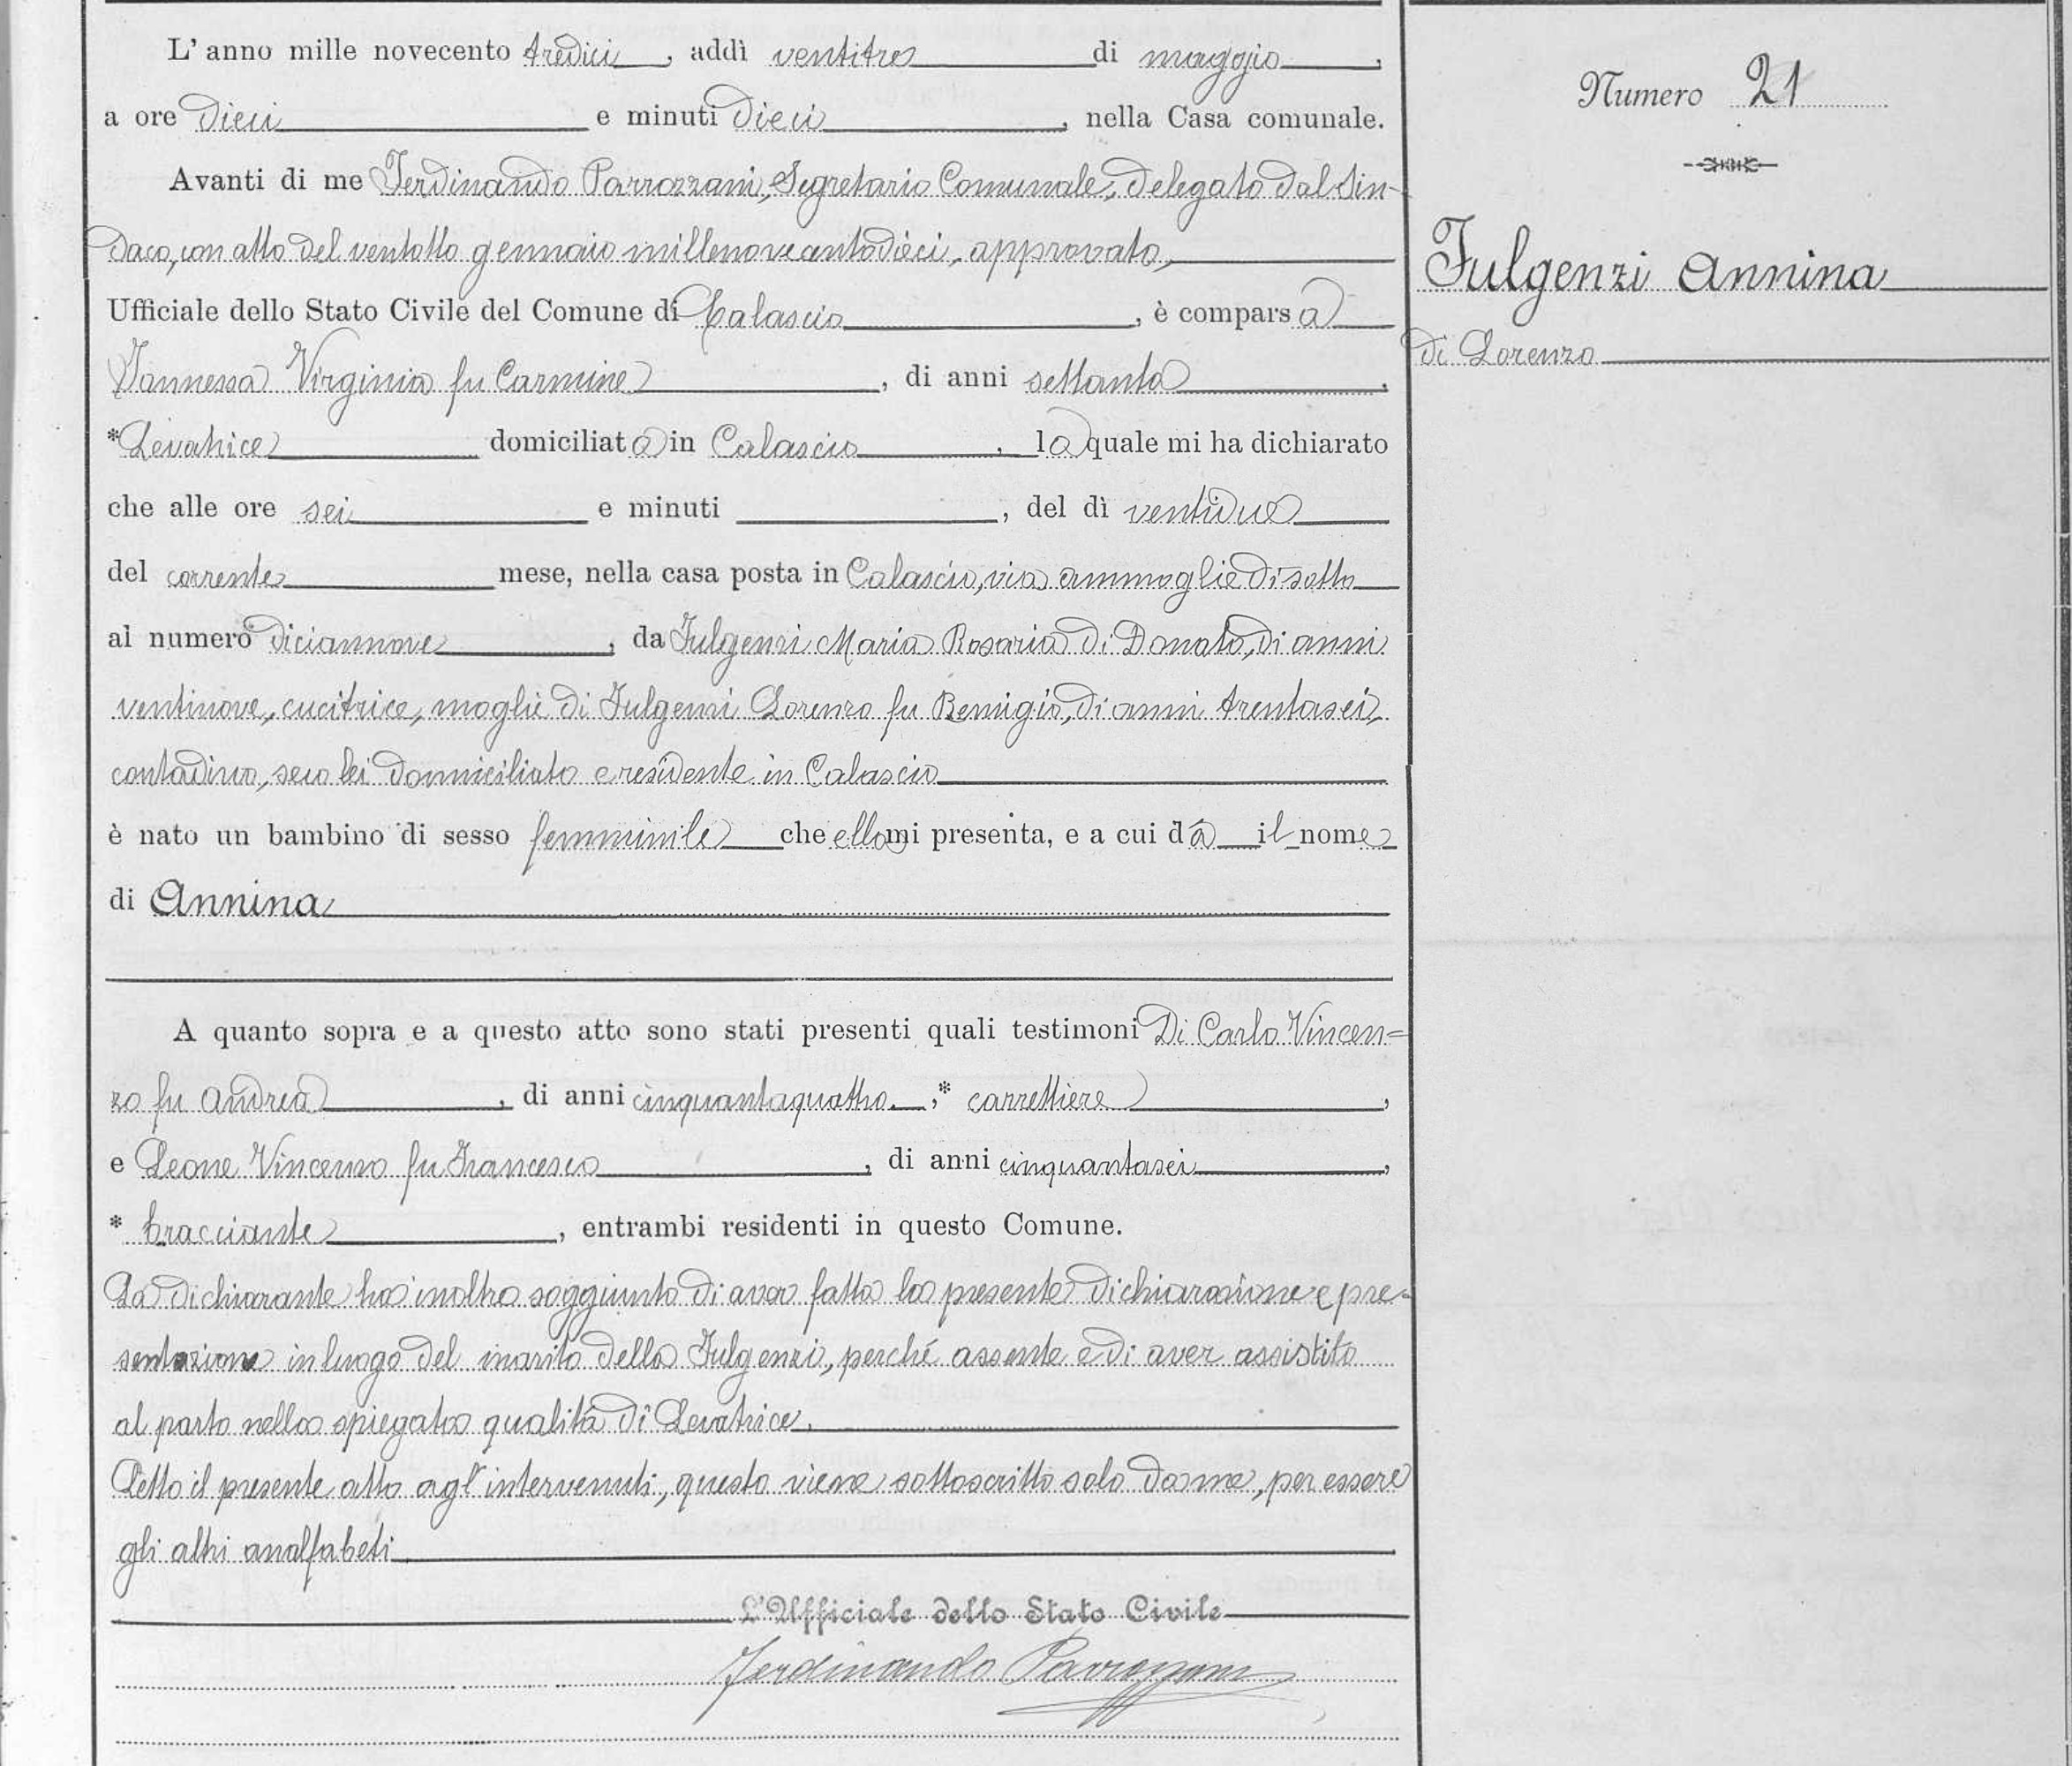 L'anno mille novecento tredici, addì ventitre di maggio,
a ore dieci e minuti dieci, nella Casa comunale.
Avanti di me Ferdinando Parrozzani, Segretario Comunale, delegato dal Sin-
daco, con atto del ventotto gennaio millenovecentodieci, approvato,
Ufficiale dello Stato Civile del Comune di Calascio, è comparsa
Iannessa Virginia fu Carmine, di anni settanta,
*Levatrice domiciliata in Calascio, la quale mi ha dichiarato
che alle ore sei e minuti , del dì ventidue
del corrente mese, nella casa posta in Calascio, via ammoglie di sotto
al numero diciannove, da Fulgenzi Maria Rosaria di Donato, di anni
ventinove, cucitrice, moglie di Fulgenzi Lorenzo fu Remigio, di anni trentasei,
contadino, seco lei domiciliato e residente in Calascio
è nato un bambino di sesso femminile che ella mi presenta, e a cui dà il nome
di Annina
A quanto sopra e a questo atto sono stati presenti quali testimoni Di Carlo Vincen=
zo fu Andrea, di anni cinquantaquattro, * carrettiere,
e Leone Vincenzo fu Francesco, di anni cinquantasei,
* bracciante, entrambi residenti in questo Comune.
La dichiarante ha inoltre soggiunto di aver fatta la presente dichiarazione e pre-
sentazione in luogo del marito della Fulgenzi, perché assente e di aver assistito
al parto nella spiegata qualità di Levatrice.
Letto il presente atto agl'intervenuti, questo viene sottoscritto solo da me, per essere
gli altri analfabeti
L'Ufficiale dello Stato Civile
Ferdinando Parrozzani
Numero 21
Fulgenzi Annina
di Lorenzo